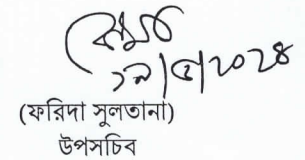 ২৯|৫|২০২৪
(ফরিদা সুলতানা)
উপসচিব